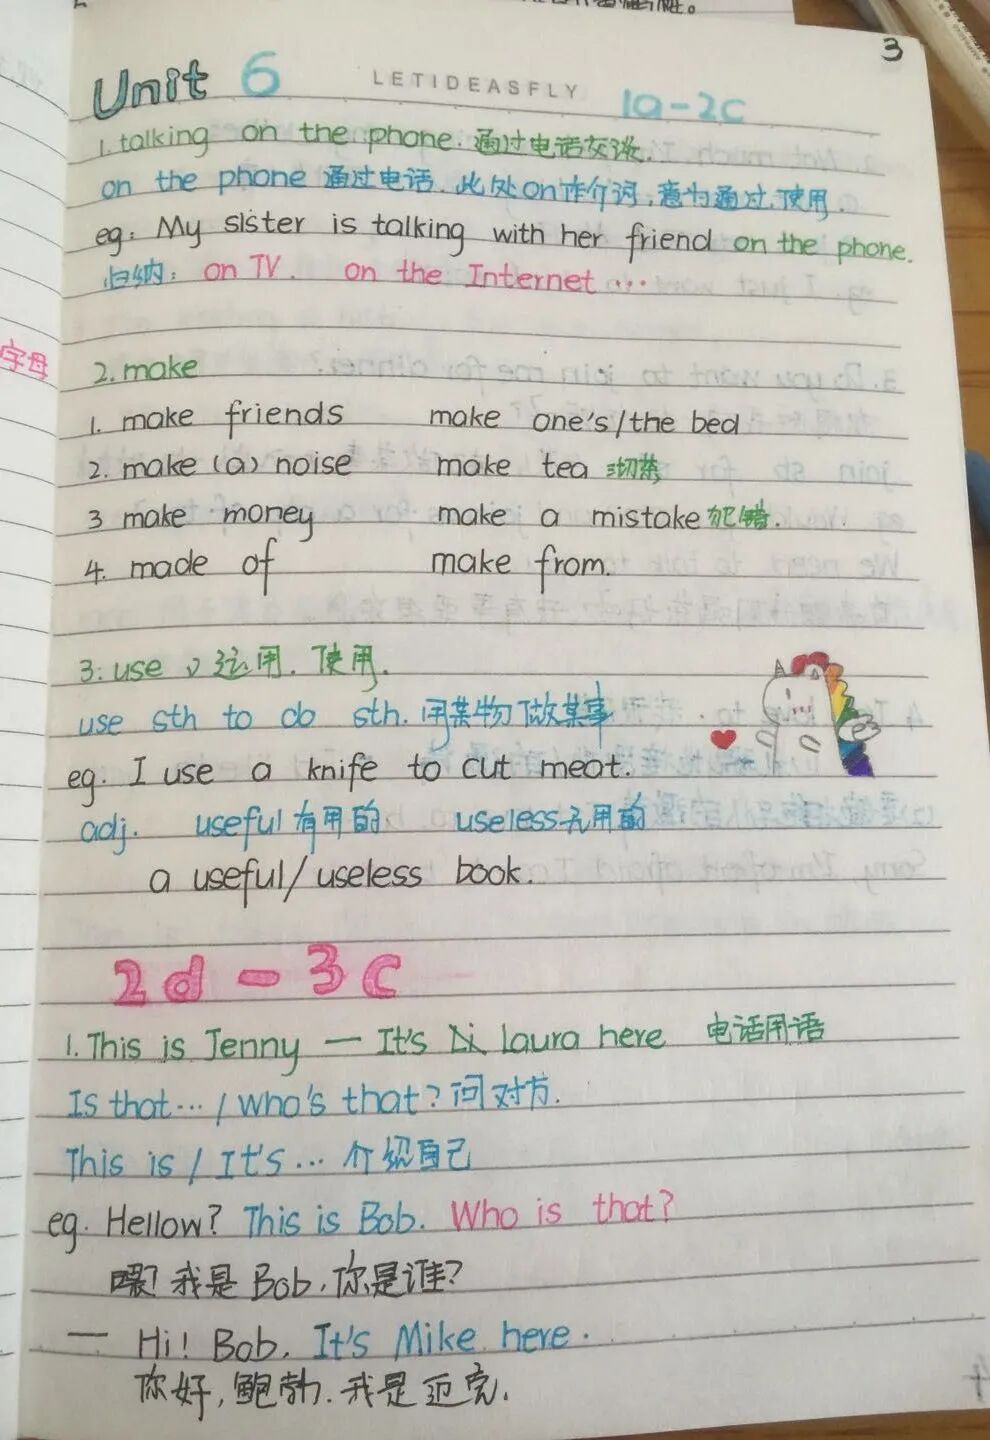 3
Unit 6 LETIDEASFLY 1a-2c
1. talking on the phone. 通过电话交谈.
on the phone 通过电话. 此处on作介词,意为通过,使用.
eg: My sister is talking with her friend on the phone.
归纳: on TV. on the Internet ...
字母
2. make
1. make friends make one's/the bed
2. make (a) noise make tea 沏茶
3 make money make a mistake 犯错.
4. made of make from.
3: use v 运用. 使用.
use sth to do sth. 用某物做某事
eg. I use a knife to cut meat.
adj. useful 有用的 useless 无用的
a useful/useless book.
2d-3c
1. This is Jenny — It's laura here 电话用语
Is that... / who's that? 问对方.
This is / It's ... 介绍自己
eg. Hellow? This is Bob. Who is that?
喂? 我是 Bob, 你是谁?
— Hi! Bob. It's Mike here.
你好, 鲍勃. 我是迈克.